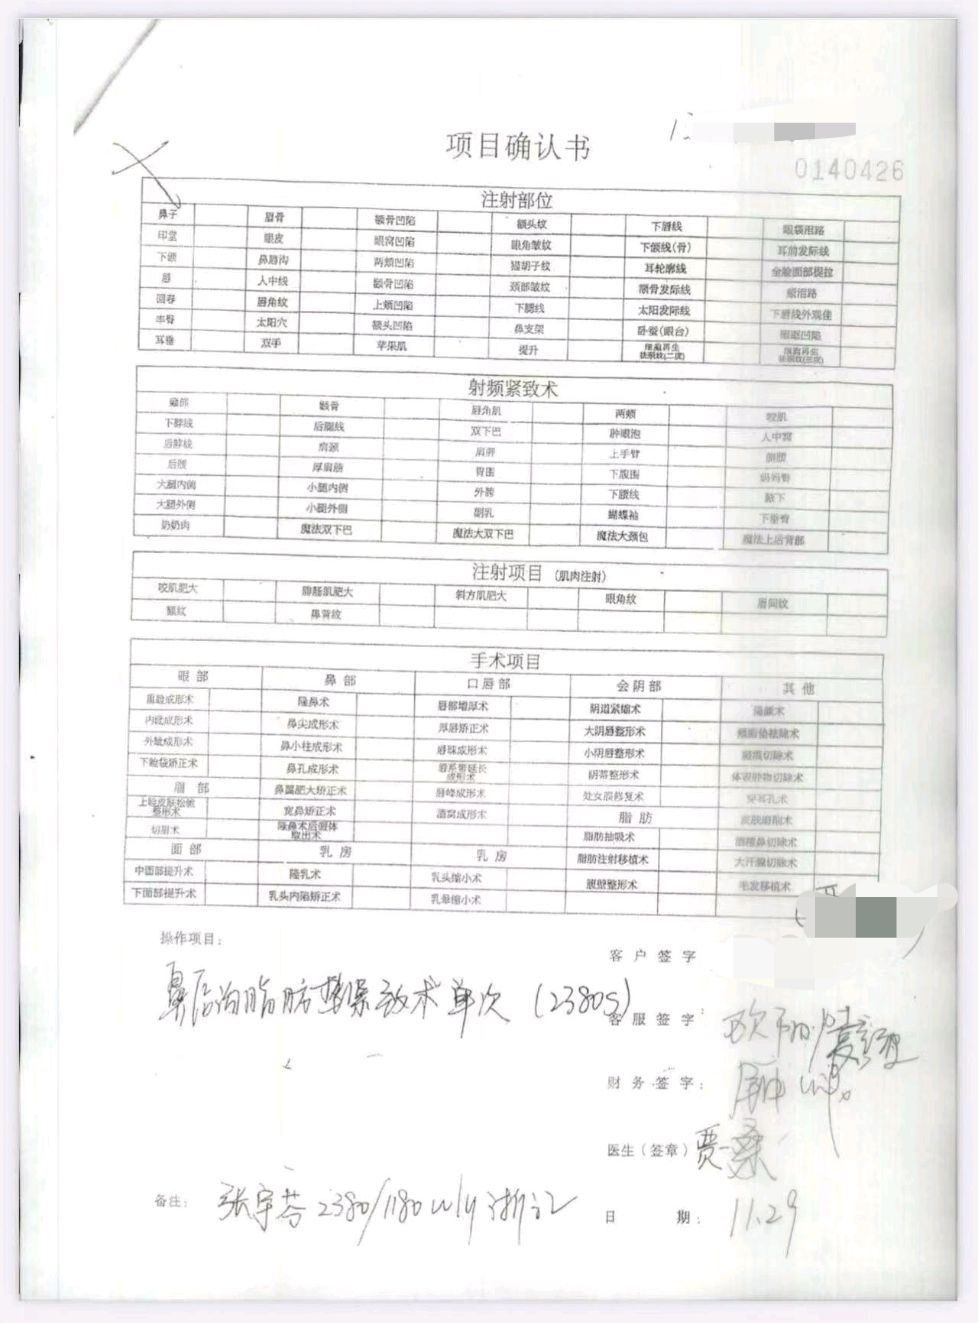 项目确认书
0140426
注射部位
鼻子 眉骨 额骨凹陷 额头纹 下唇线 眼袋泪路
印堂 眼皮 眼窝凹陷 眼角皱纹 下颌线(骨) 耳前发际线
下颌 鼻唇沟 两颊凹陷 猫胡子纹 耳轮廓线 全脸面部提拉
唇 人中线 颧骨凹陷 颈部皱纹 颞骨发际线
回春 唇角纹 上颊凹陷 下腮线 太阳发际线
丰臀 太阳穴 额头凹陷 鼻支架 卧蚕(眼台)
耳垂 双手 苹果肌 提升
射频紧致术
颧骨 唇角肌 两颊 咬肌
下脖线 后腿线 双下巴 肿眼泡
后脖线 肩颈 肩胛 上手臂
后腰 厚肩筋 胃围 下腹围
大腿内侧 小腿内侧 外胯 下腰线 腋下
大腿外侧 小腿外侧 副乳 蝴蝶袖 下垂臀
奶奶肉 魔法双下巴 魔法大双下巴 魔法大颈包 魔法上后背部
注射项目 (肌肉注射)
咬肌肥大 腓肠肌肥大 斜方肌肥大 眼角纹 眉间纹
额纹 鼻背纹
手术项目
眼部 鼻部 口唇部 会阴部 其他
重睑成形术 隆鼻术 唇部增厚术 阴道紧缩术 隆颏术
内眦成形术 鼻尖成形术 厚唇矫正术 大阴唇整形术 颊脂垫祛除术
外眦成形术 鼻小柱成形术 唇珠成形术 小阴唇整形术
下睑袋矫正术 鼻孔成形术 唇系带延长成形术 阴蒂整形术 体表肿物切除术
眉部 鼻翼肥大矫正术 唇峰成形术 处女膜修复术 穿耳孔术
上睑皮肤松弛整形术 宽鼻矫正术 酒窝成形术 脂肪 皮肤磨削术
切眉术 隆鼻术后假体取出术 脂肪抽吸术 酒糟鼻切除术
面部 乳房 乳房 脂肪注射移植术 大汗腺切除术
中面部提升术 隆乳术 乳头缩小术 腹壁整形术 毛发移植术
下面部提升术 乳头内陷矫正术 乳晕缩小术
操作项目:
客户签字
鼻唇沟脂肪垫紧致术单次(2380S)
客服签字:
财务签字:
医生(签章) 贾桑
备注: 张宇芬 2380/1180 浙江
日期: 11.29